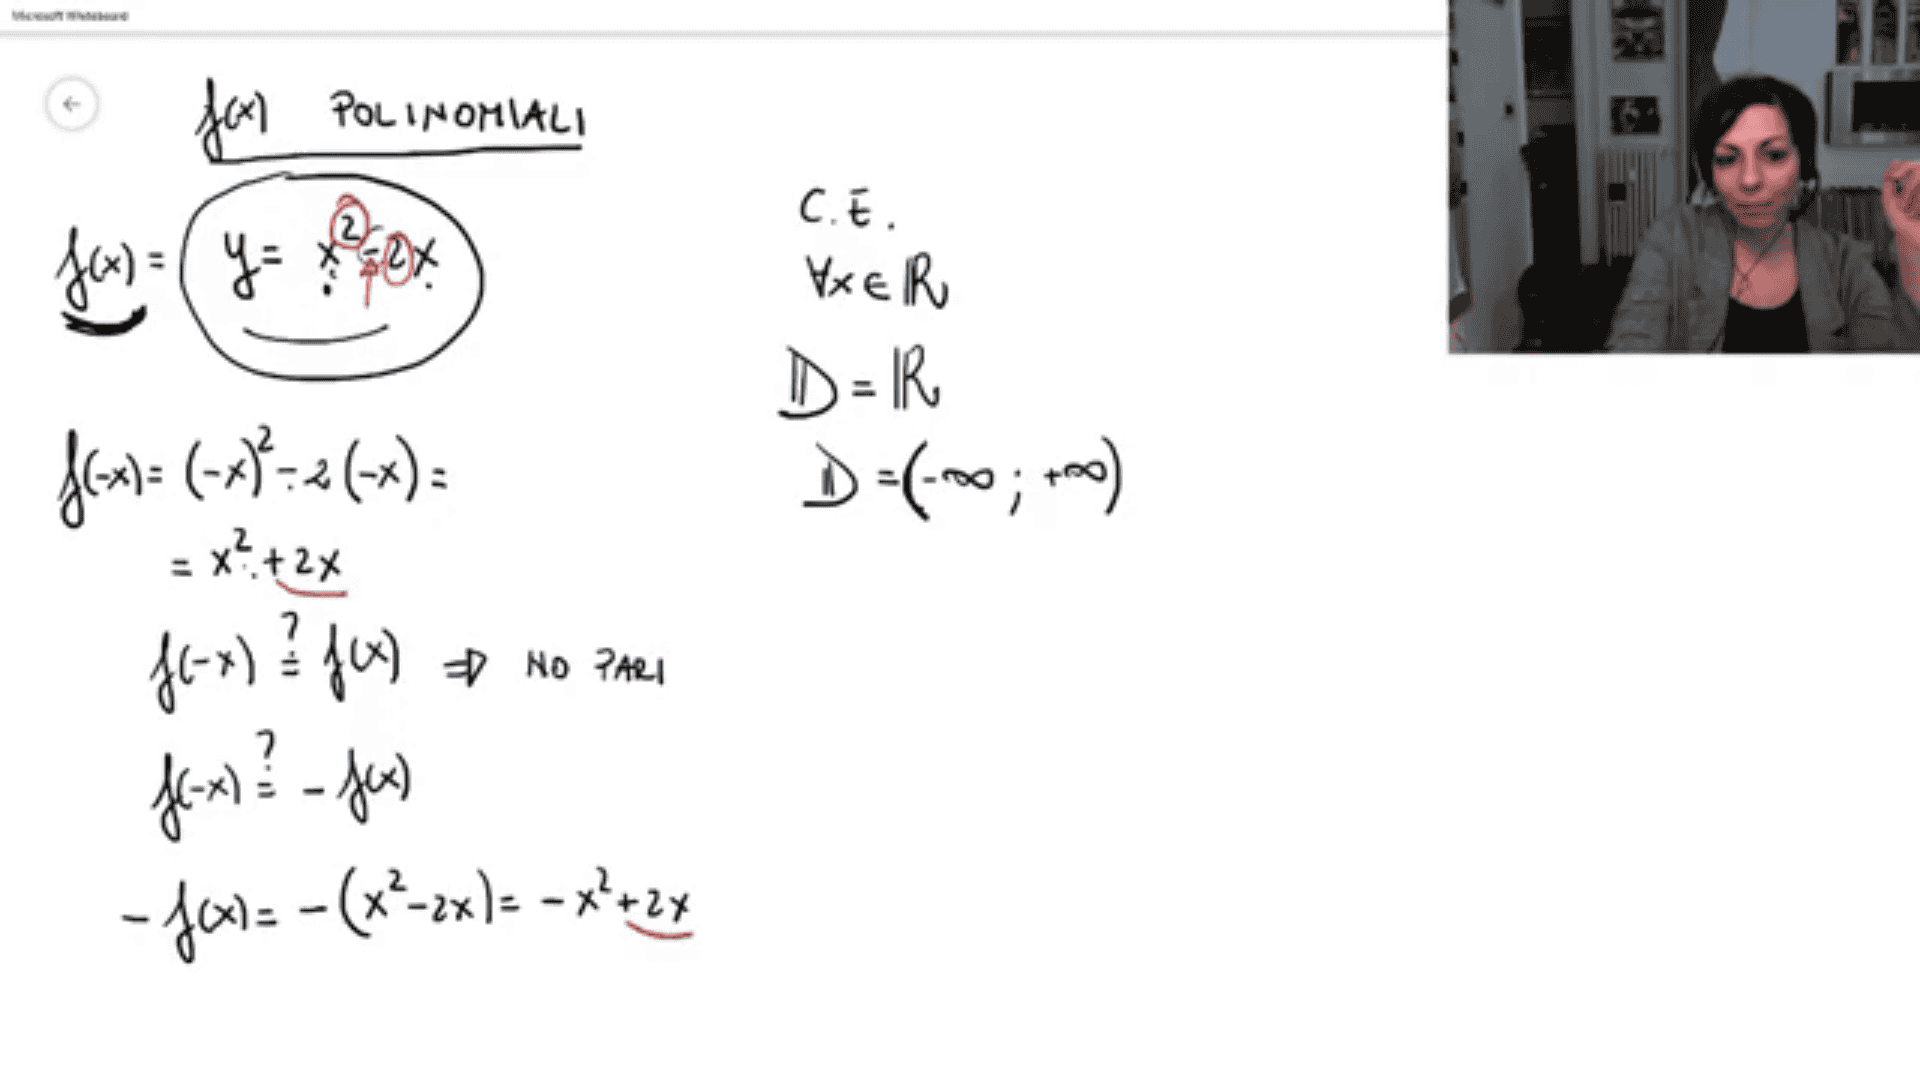 Microsoft Whiteboard
f(x) POLINOMIALI
f(x) = y = x² - 2x
f(-x) = (-x)² - 2(-x) =
= x² + 2x
f(-x) ?= f(x) ⇒ NO PARI
f(-x) ?= - f(x)
- f(x) = - (x² - 2x) = - x² + 2x
C.E.
∀x ∈ ℝ
D = ℝ
D = (-∞ ; +∞)